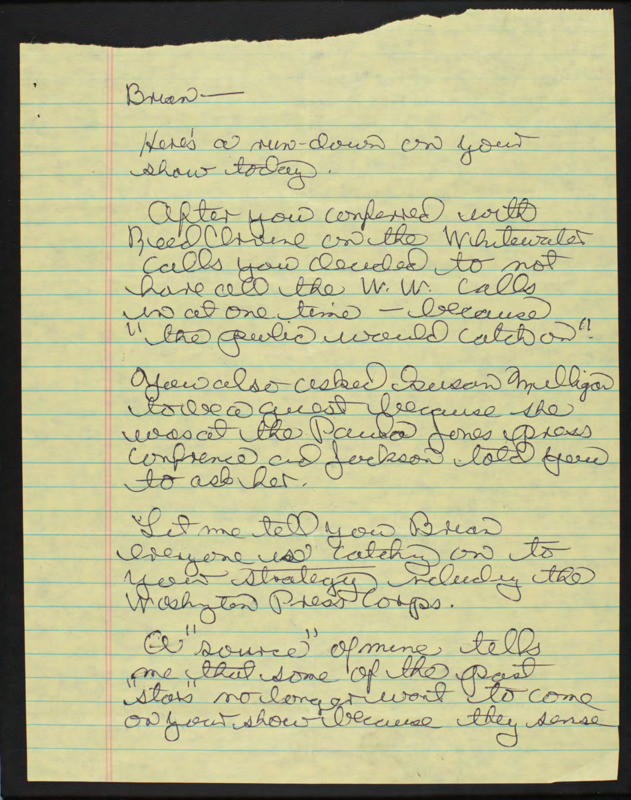 Brian —
Here's a run-down on your
show today.
After you conferred with
on the Whitewater
calls you decided to not
have all the W.W. calls
in at one time — because
"the public would catch on".
You also asked Susan Milligan
to be a guest because she
was at the Paula Jones press
conference and Jackson told you
to ask her.
Let me tell you Brian
everyone is catching on to
your strategy including the
Washington Press Corps.
A "source" of mine tells
me that some of the past
"stars" no longer want to come
on your show because they sense